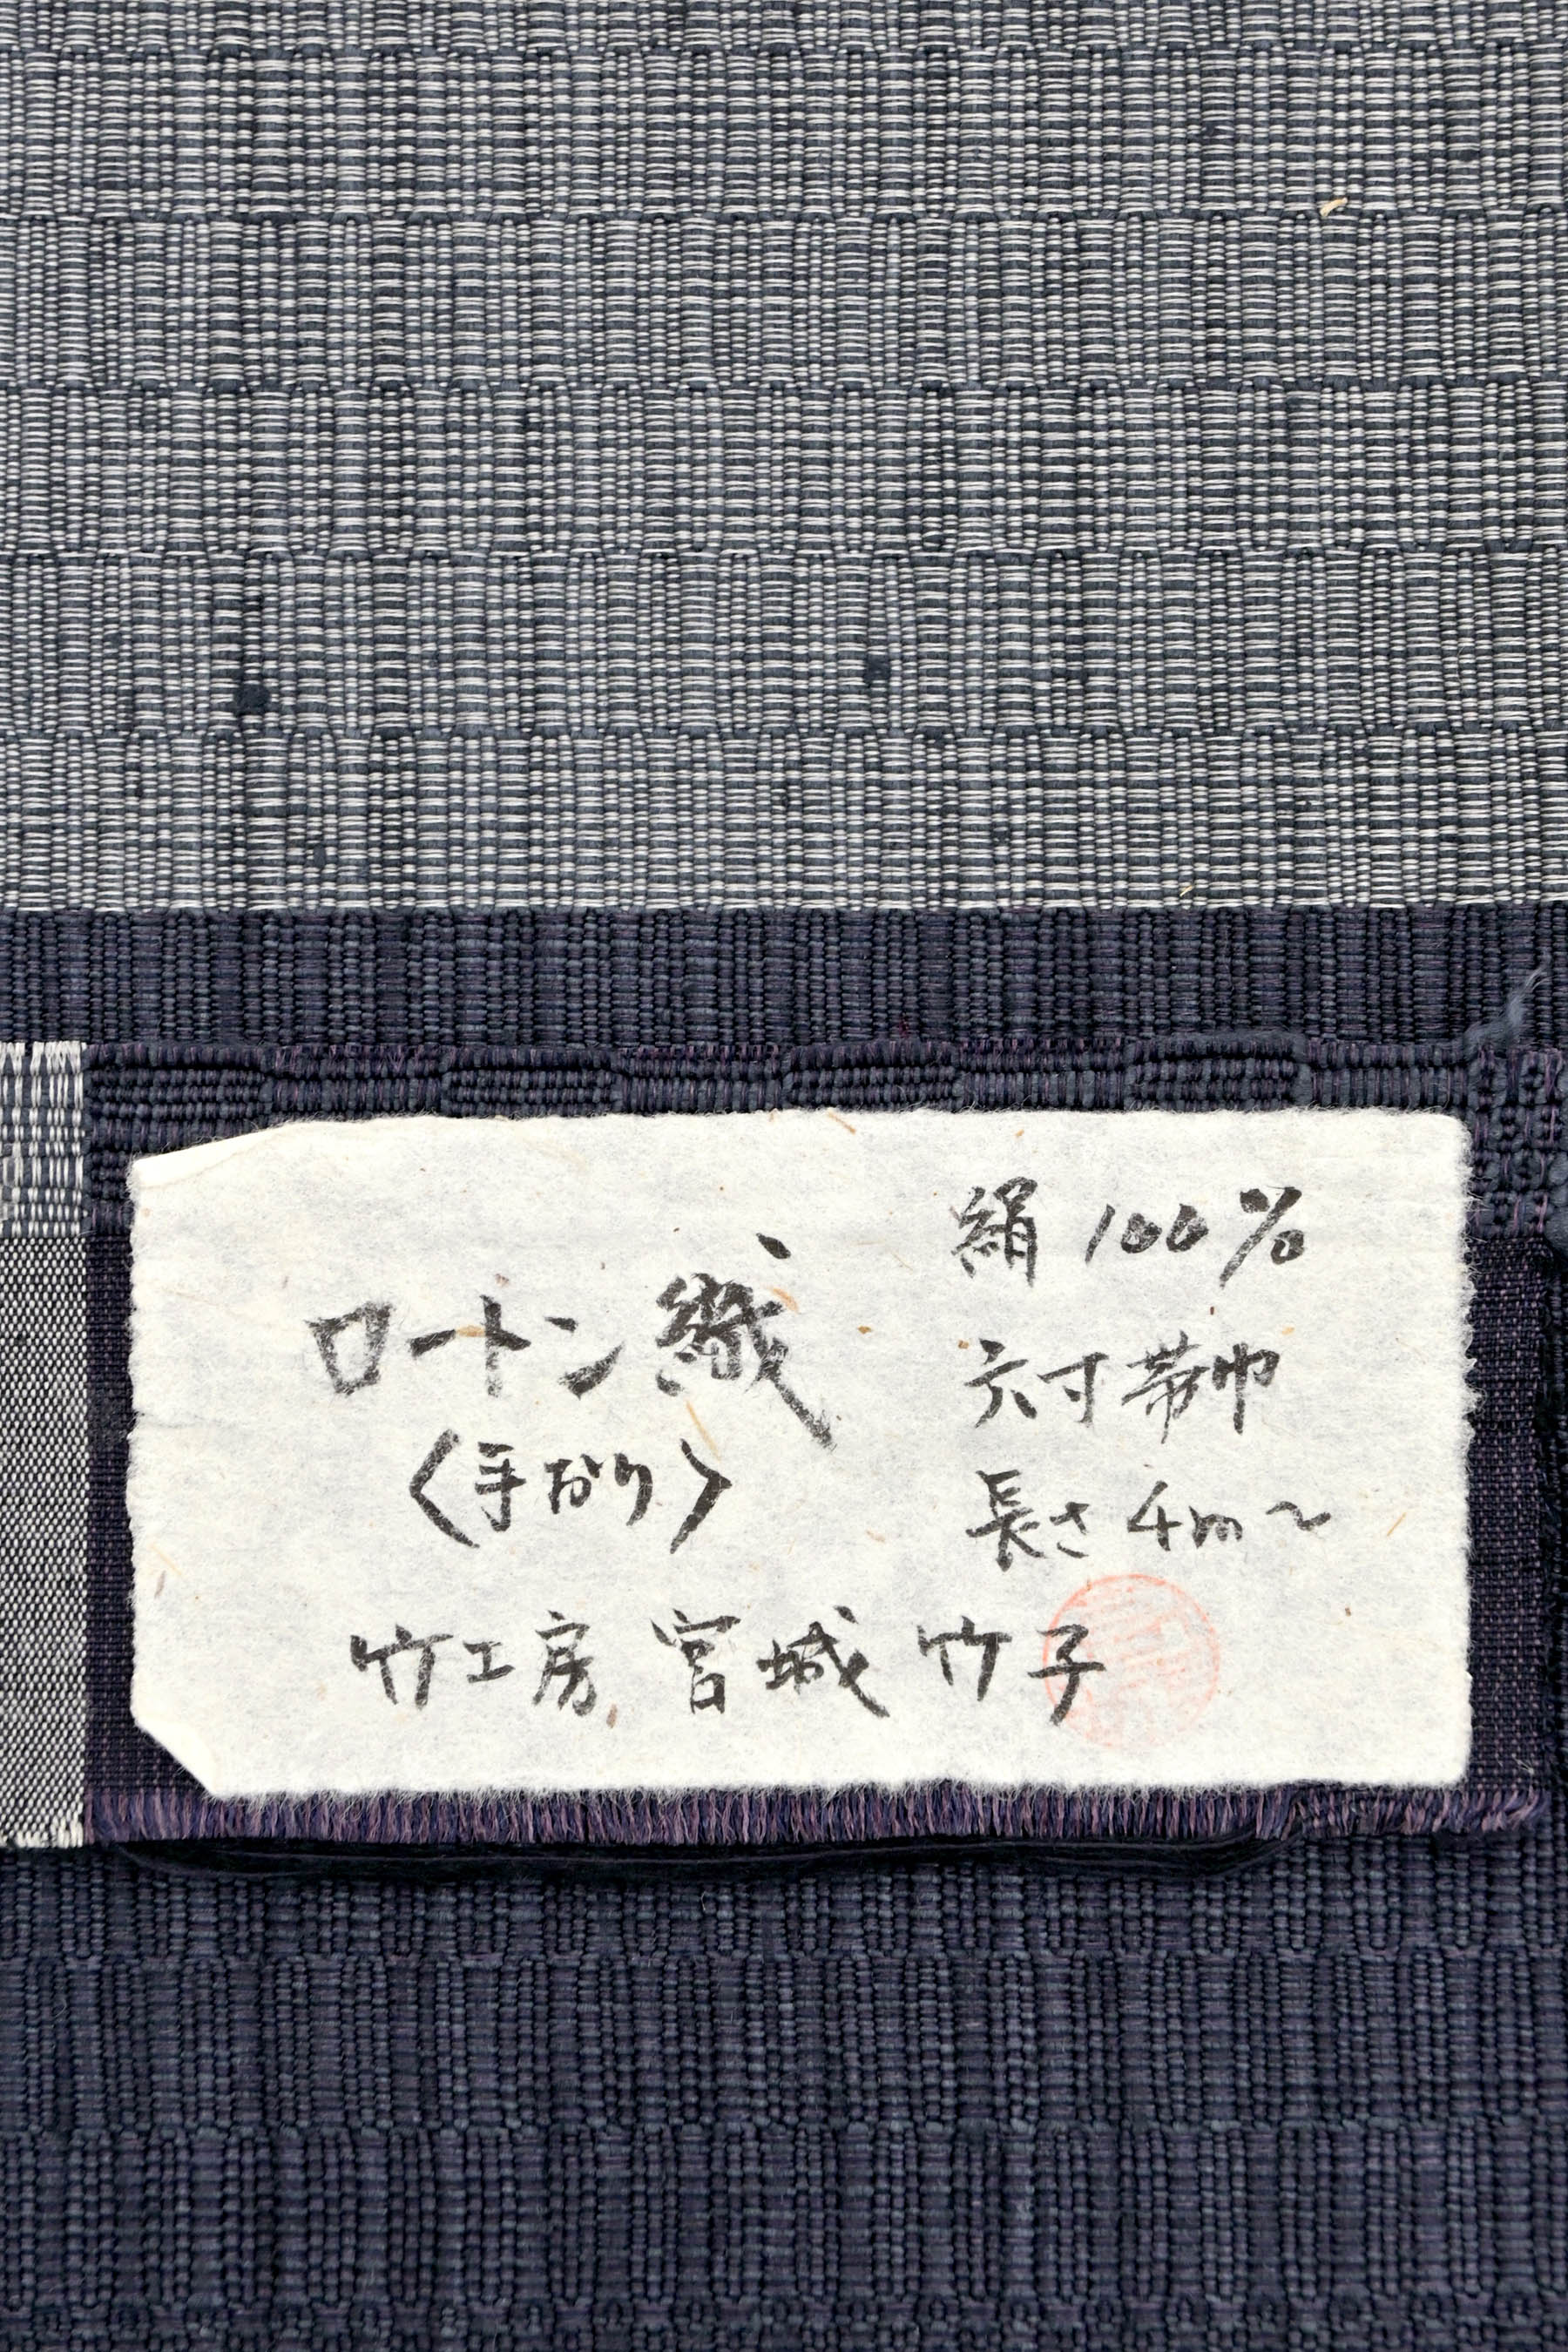 絹100%
六寸帯巾
長さ4m〜
ロートン織
〈手おり〉
竹工房 宮城竹子